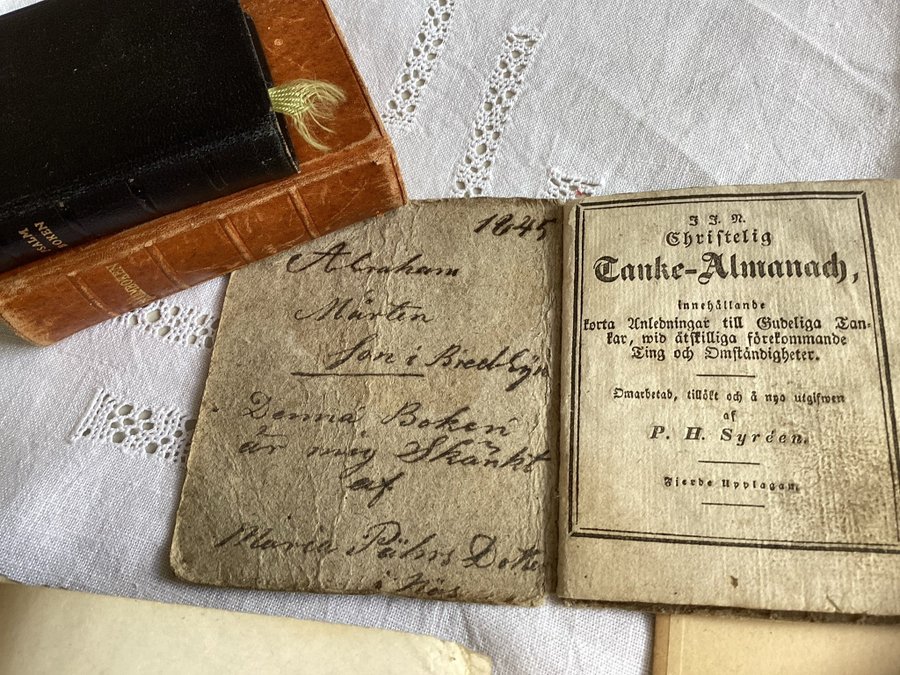 PSALM
BOKEN
1845
Abraham
Mårten
Son i Bredbyn
Denna Boken
är mig Skänkt
af
Maria Påhrs Dotter
i Näs
J J. N.
Christelig
Tanke-Almanach,
innehållande
korta Anledningar till Gudeliga Tan-
kar, wid åtskilliga förekommande
Ting och Omständigheter.
Omarbetad, tillökt och å nyo utgifwen
af
P. H. Syréen.
Fjerde Upplagan.